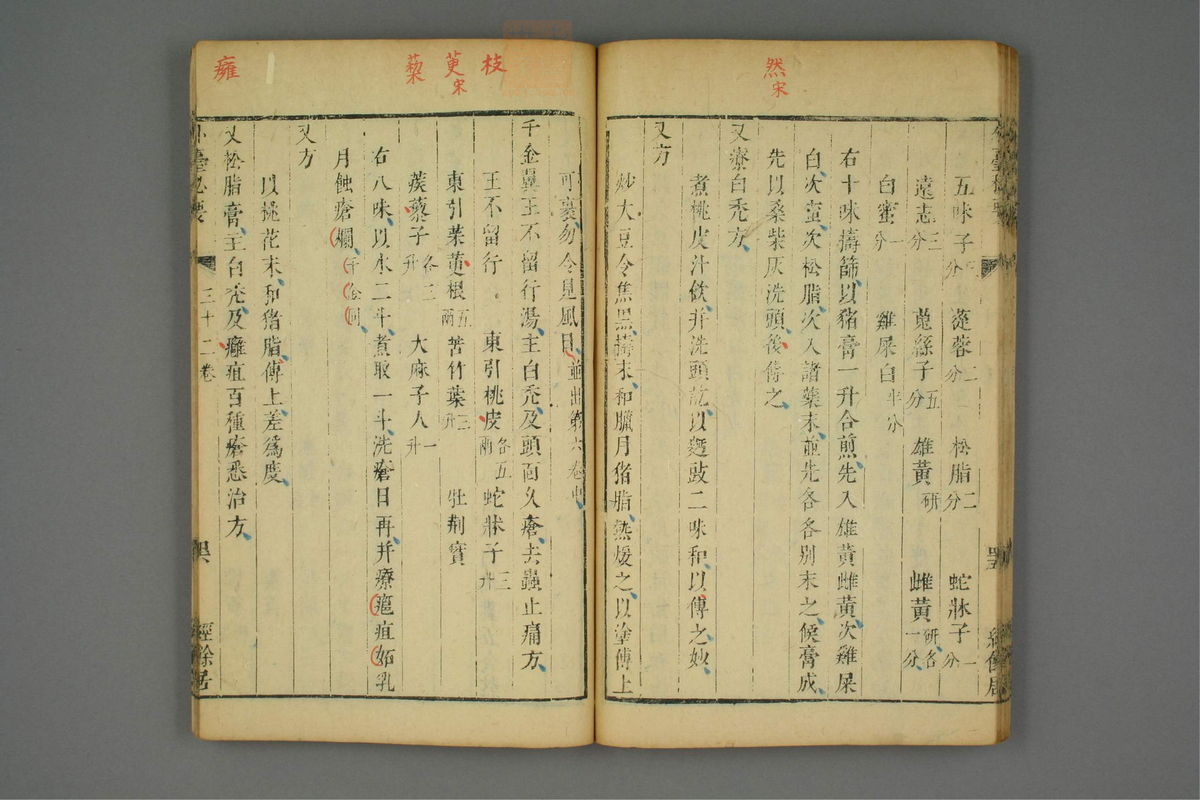 然宋
五味子三分 蓯蓉二分 松脂二分 蛇牀子一分
遠志三分 菟絲子五分 雄黄研 雌黄研各一分
白蜜一分 雞屎白半分
右十味擣篩以猪膏一升合煎先入雄黄雌黄次雞屎
白次蜜次松脂次入諸藥末並先各各别末之候膏成
先以桑柴灰洗頭後傅之
又療白禿方
煮桃皮汁飲并洗頭訖以麫豉二味和以傅之妙
又方
炒大豆令焦黒擣末和臘月猪脂熱煖之以塗傅上
枝
萸宋
蔾
癰
可裹勿令見風日並出第六卷中
千金翼王不留行湯主白禿及頭面久瘡去蟲止痛方
王不留行 東引桃皮各五兩 蛇牀子三升
東引茱萸根五兩 苦竹葉三升 牡荆實
蒺蔾子各三升 大麻子人一升
右八味以水二斗煮取一斗洗瘡日再并療疽妬乳
月蝕瘡爛千金同
又方
以桃花末和猪脂傅上差為度
又松脂膏主白禿及癰疽百種瘡悉治方
外臺必要 三十二卷 經餘居